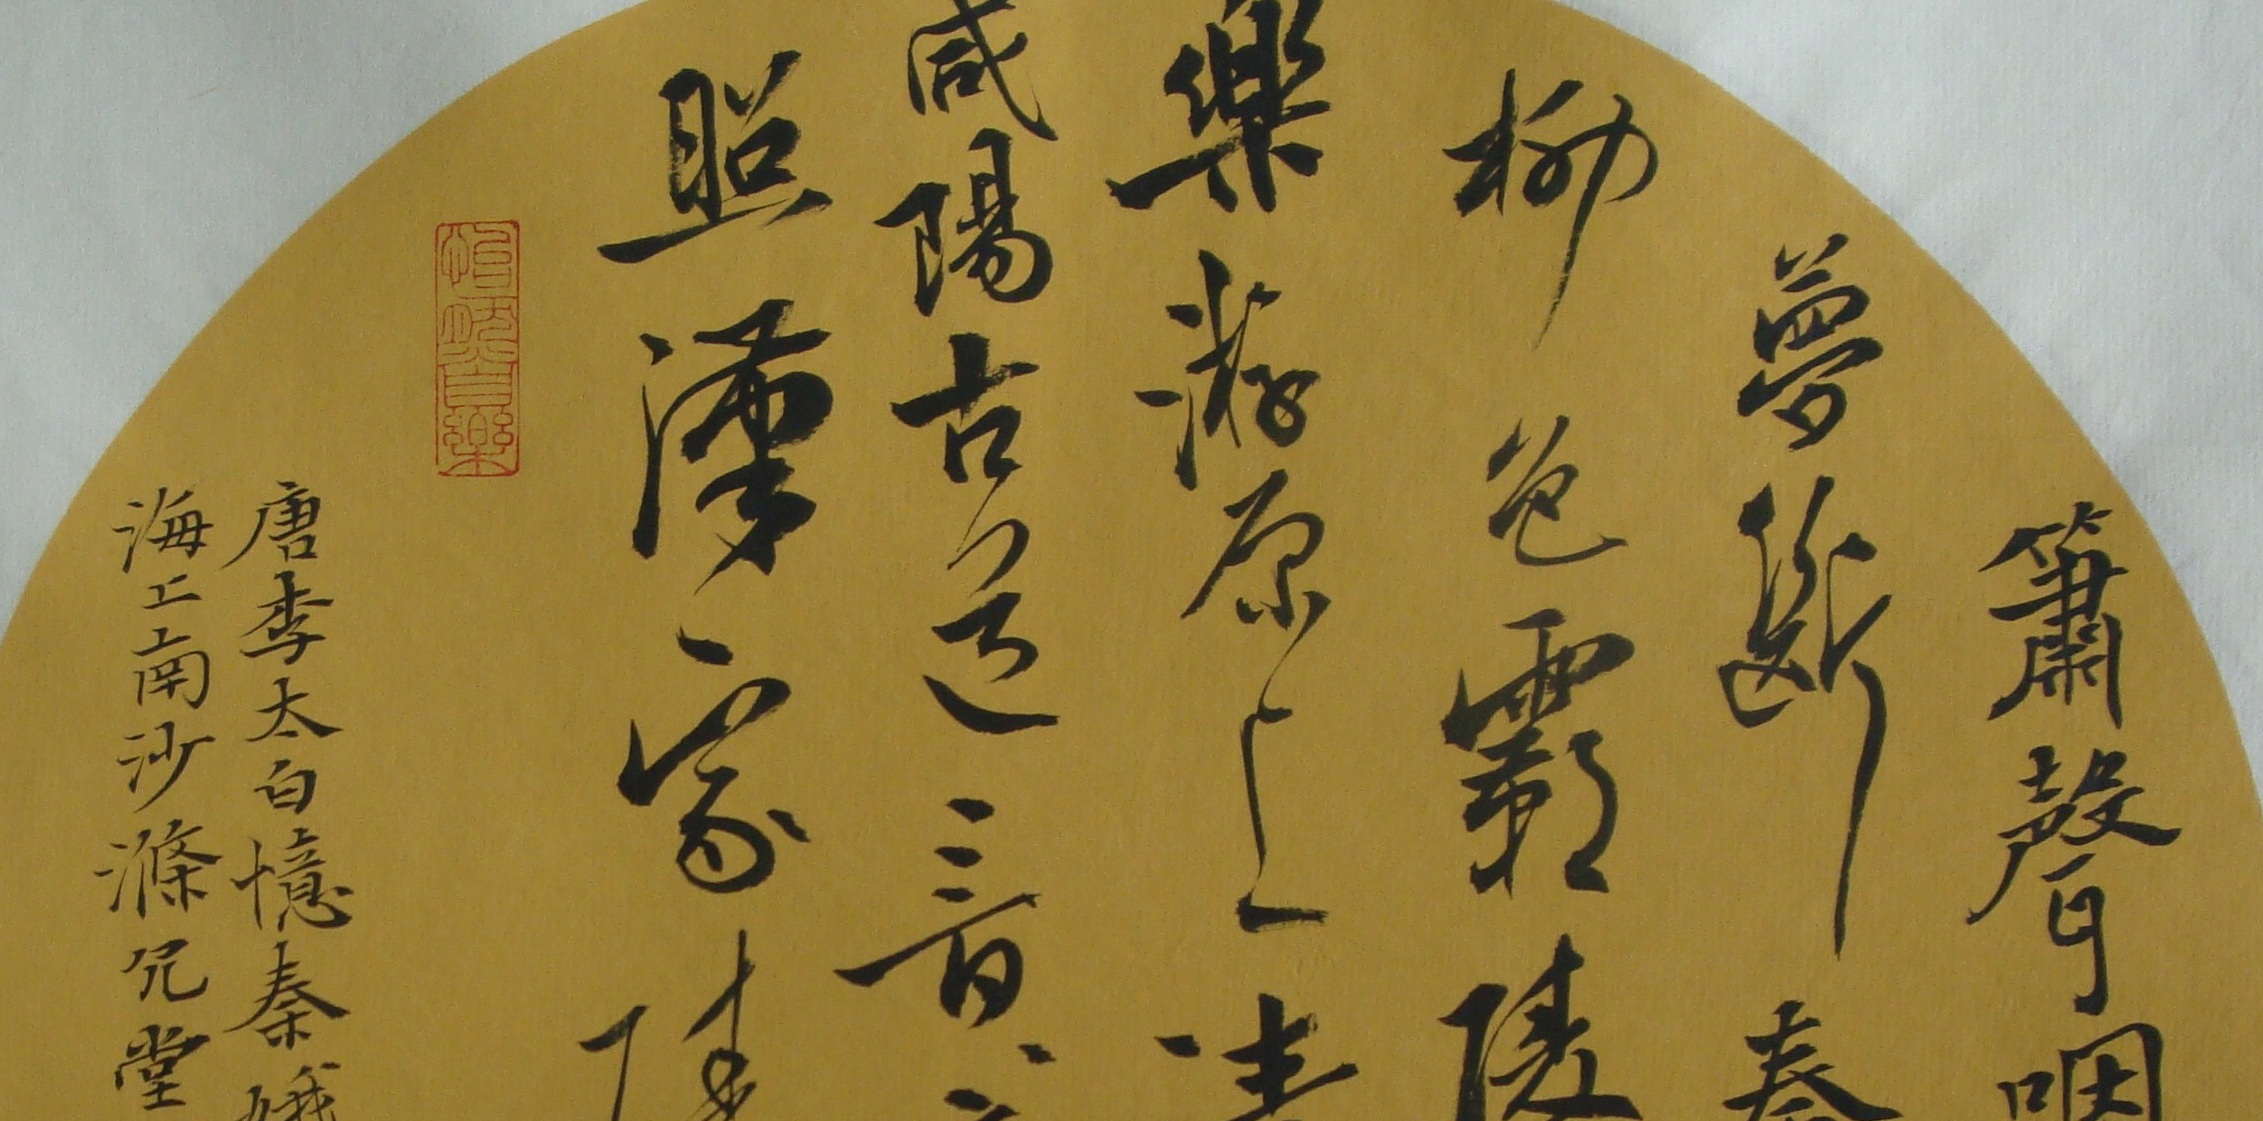 簫聲咽
夢斷秦
柳色霸陵
樂游原上清
咸陽古道音
照漢家陵
怡然自樂
唐李太白憶秦娥
海上南沙滌堂